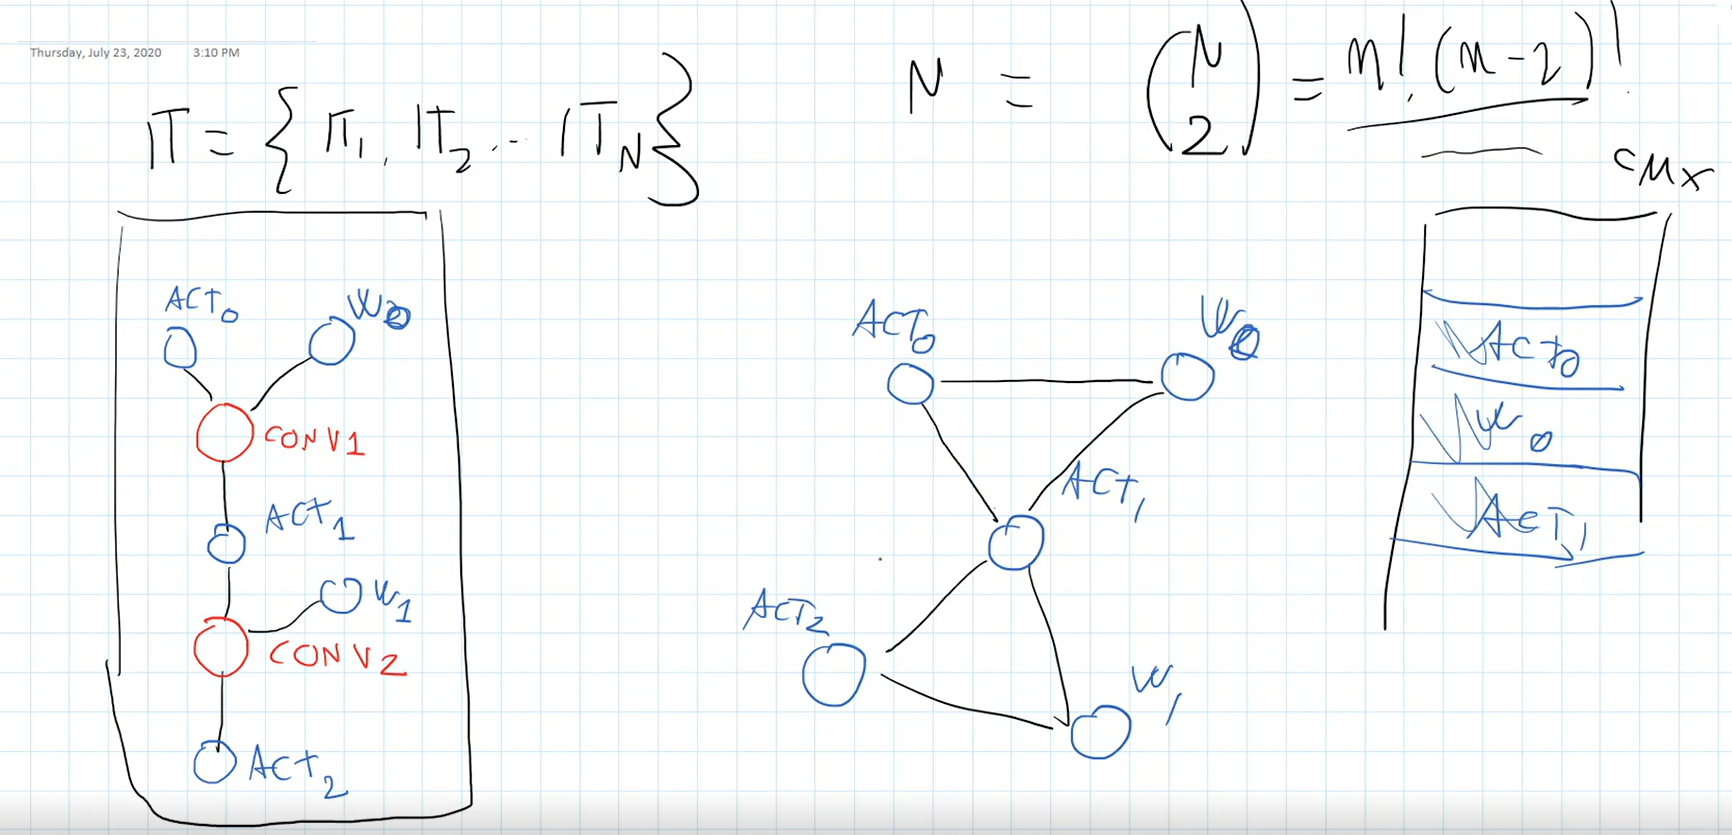 Thursday, July 23, 2020 3:10 PM
π = { π₁, π₂ ... π_N }
N = (N 2) = n! (n-2)!
CMX
ACT₀ W₀
CONV1
ACT₁
W₁
CONV2
ACT₂
ACT₀ W₀
ACT₁
ACT₂
W₁
ACT₀
W₀
ACT₁